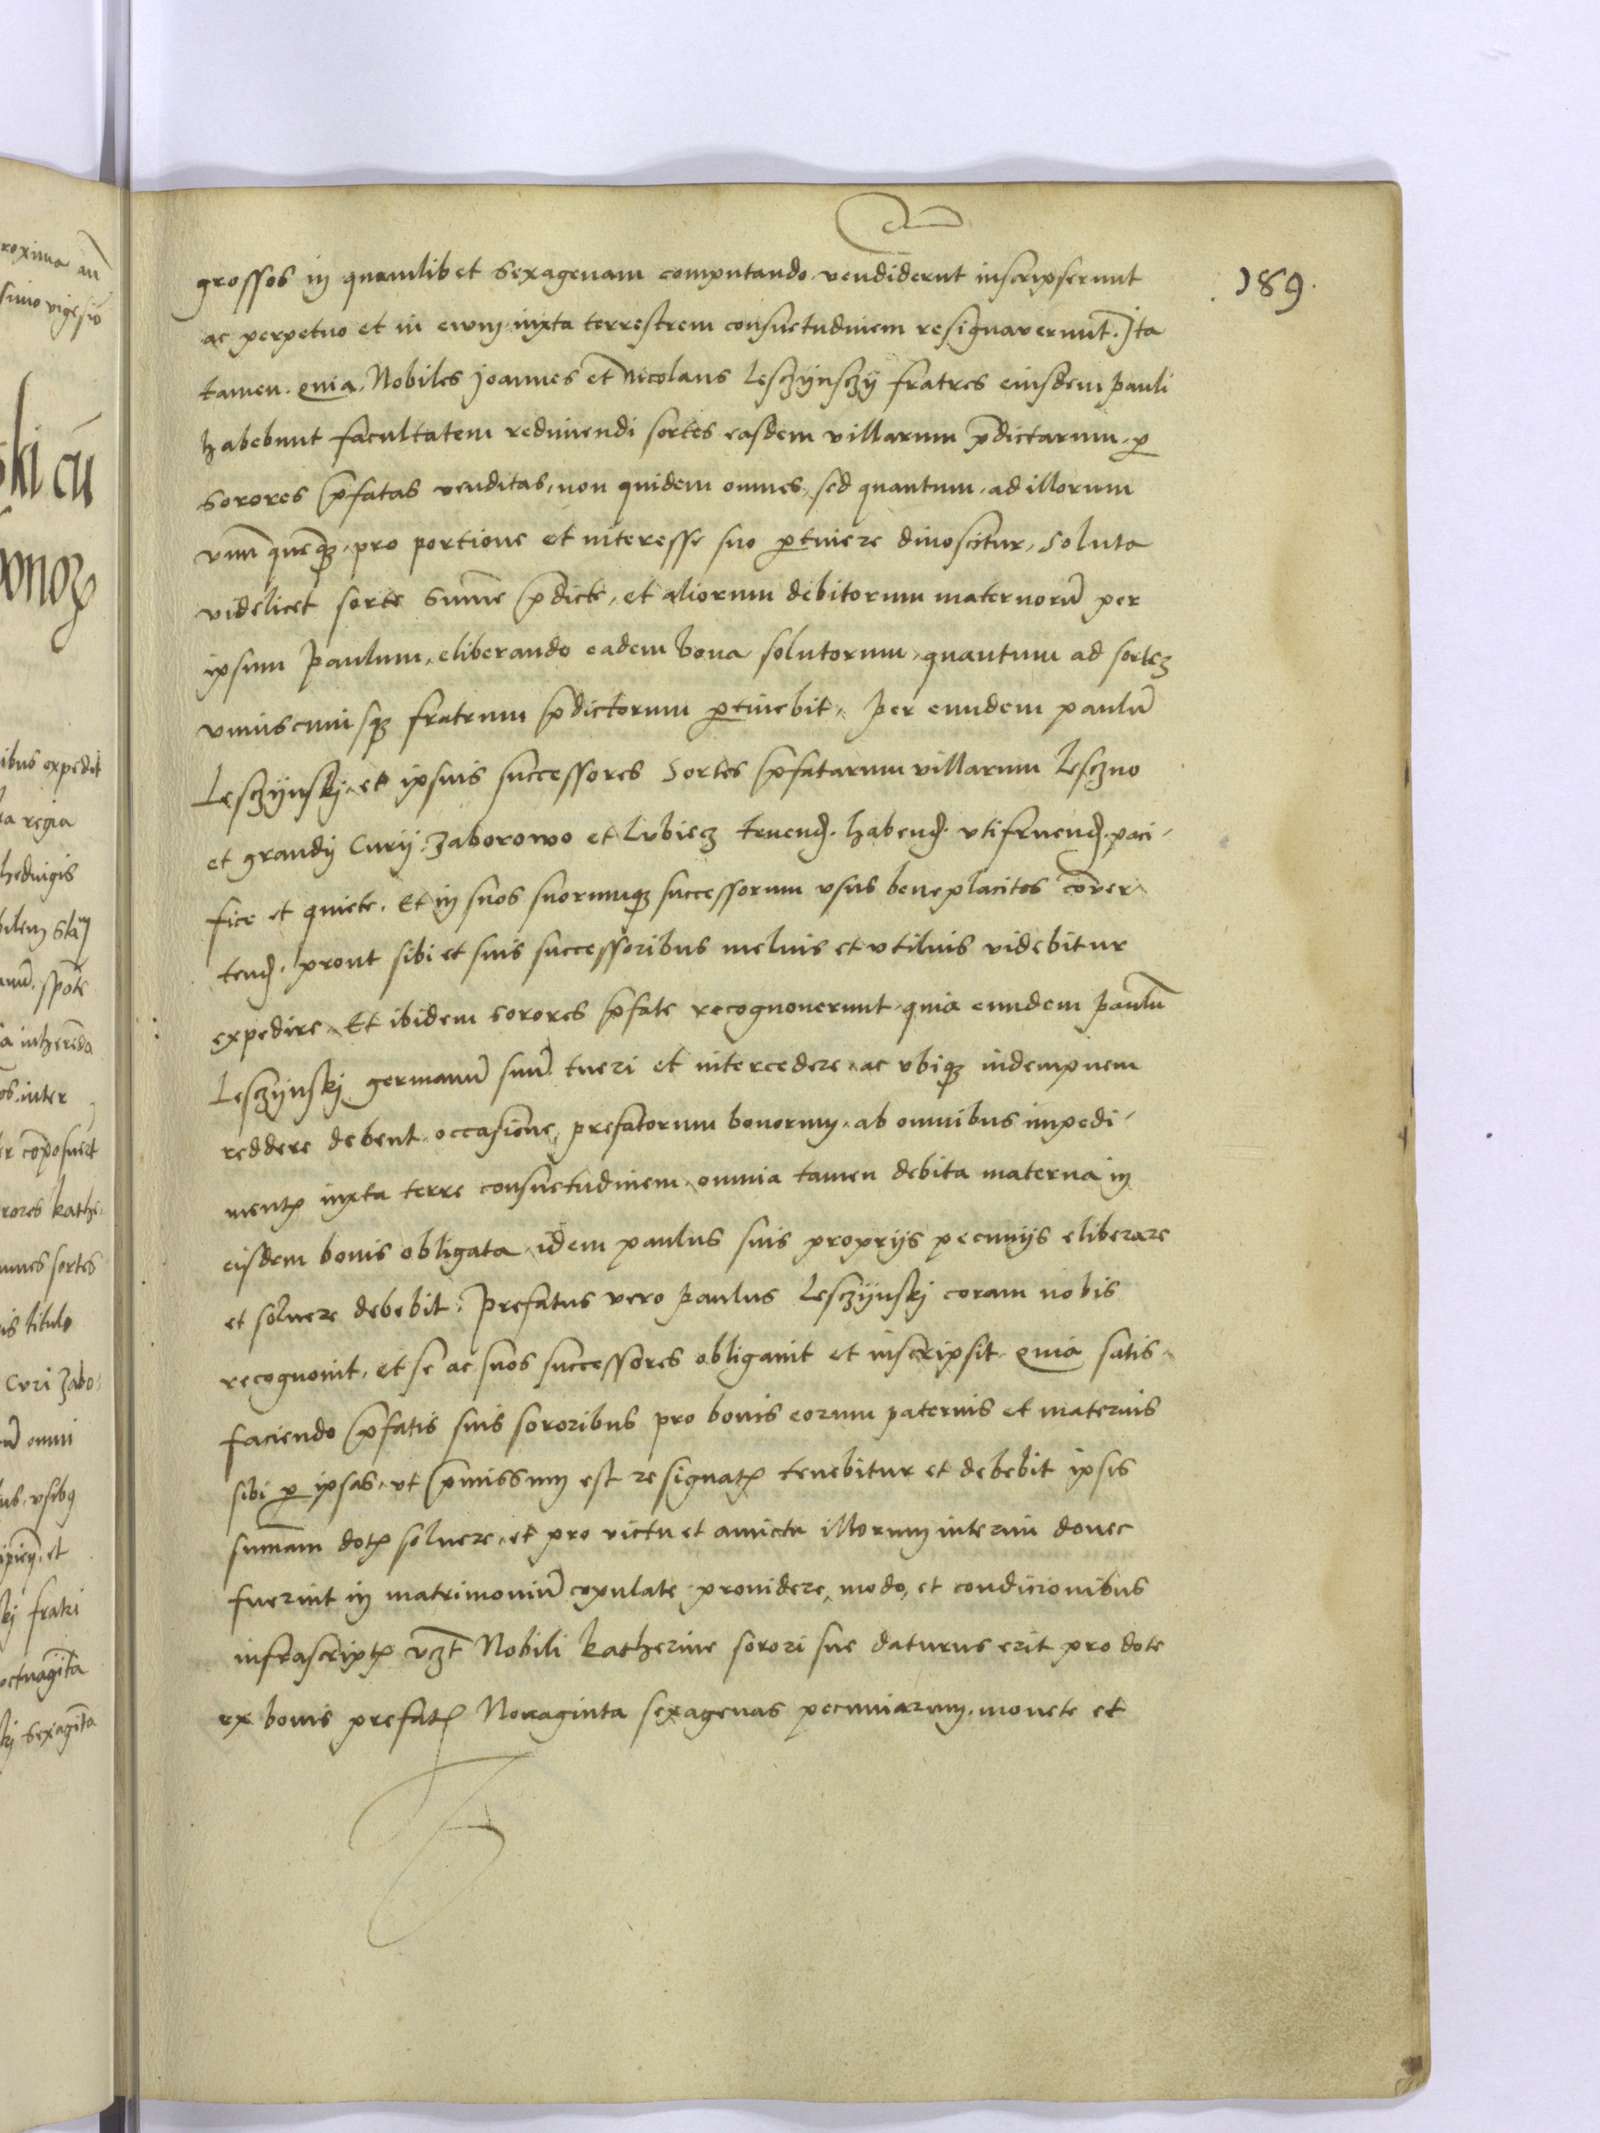 189.
grossos in quamlibet sexagenam computando, vendiderunt inscripserunt
ac perpetuo et in ewm iuxta terrestrem consuetudinem resignaverunt. Ita
tamen. quia. Nobiles Joannes et Nicolaus Lesczÿnsczÿ fratres eiusdem Pauli
habebunt facultatem redimendi sortes easdem villarum p̄dictarum, ꝑ
sorores p̄fatas venditas, non quidem omnes, sed quantum, ad illorum
vnū quēqꝫ, pro portione et interesse suo ꝑtinere dinoscitur, soluta
videlicet sorte sum̄e p̄dicte, et aliorum debitorum maternorū per
ipsum Paulum, eliberando eadem bona solutorum, quantum ad sortes
vniuscuiusqꝫ fratrum p̄dictorum ꝑtinebit, Per eundem Paulū
Lesczÿnskj, et ipsius successores Sortes p̄fatarum villarum Lesczno
et grandij Curij, Zaborowo et Lubiecz tenend̄. habend̄. vtifruend̄. paci-
fice et quiete, Et in suos suorumqꝫ successorum vsus beneplacitos cōver-
tend̄. prout sibi et suis successoribus melius et vtilius videbitur
expedire, Et ibidem sorores p̄fate recognoverunt, quia eundem Paulū
Lesczÿnskj germanū suū tueri et intercedere, ac vbiqꝫ indempnem
reddere debent, occasione, prefatorum bonorum, ab omnibus impedi-
mentꝭ iuxta terre consuetudinem, omnia tamen debita materna in
eisdem bonis obligata, idem paulus suis proprijs pecunijs eliberare
et soluere debebit: Prefatus vero Paulus Lesczÿnskj coram nobis
recognouit, et se ac suos successores obligauit et inscripsit, quia satis-
faciendo p̄fatis suis sororibus pro bonis eorum paternis et maternis
sibi ꝑ ipsas, vt p̄missum est resignatꝭ tenebitur et debebit ipsis
summam dotꝭ soluere, et pro victu et amictu illorum interim donec
fuerint in matrimoniū copulate prouidere, modo, et condicionibus
infrascriptꝭ vꝫt Nobili Katherine sorori sue daturus erit pro dote
ex bonis prefatꝭ Nonaginta sexagenas pecuniarum, monete et